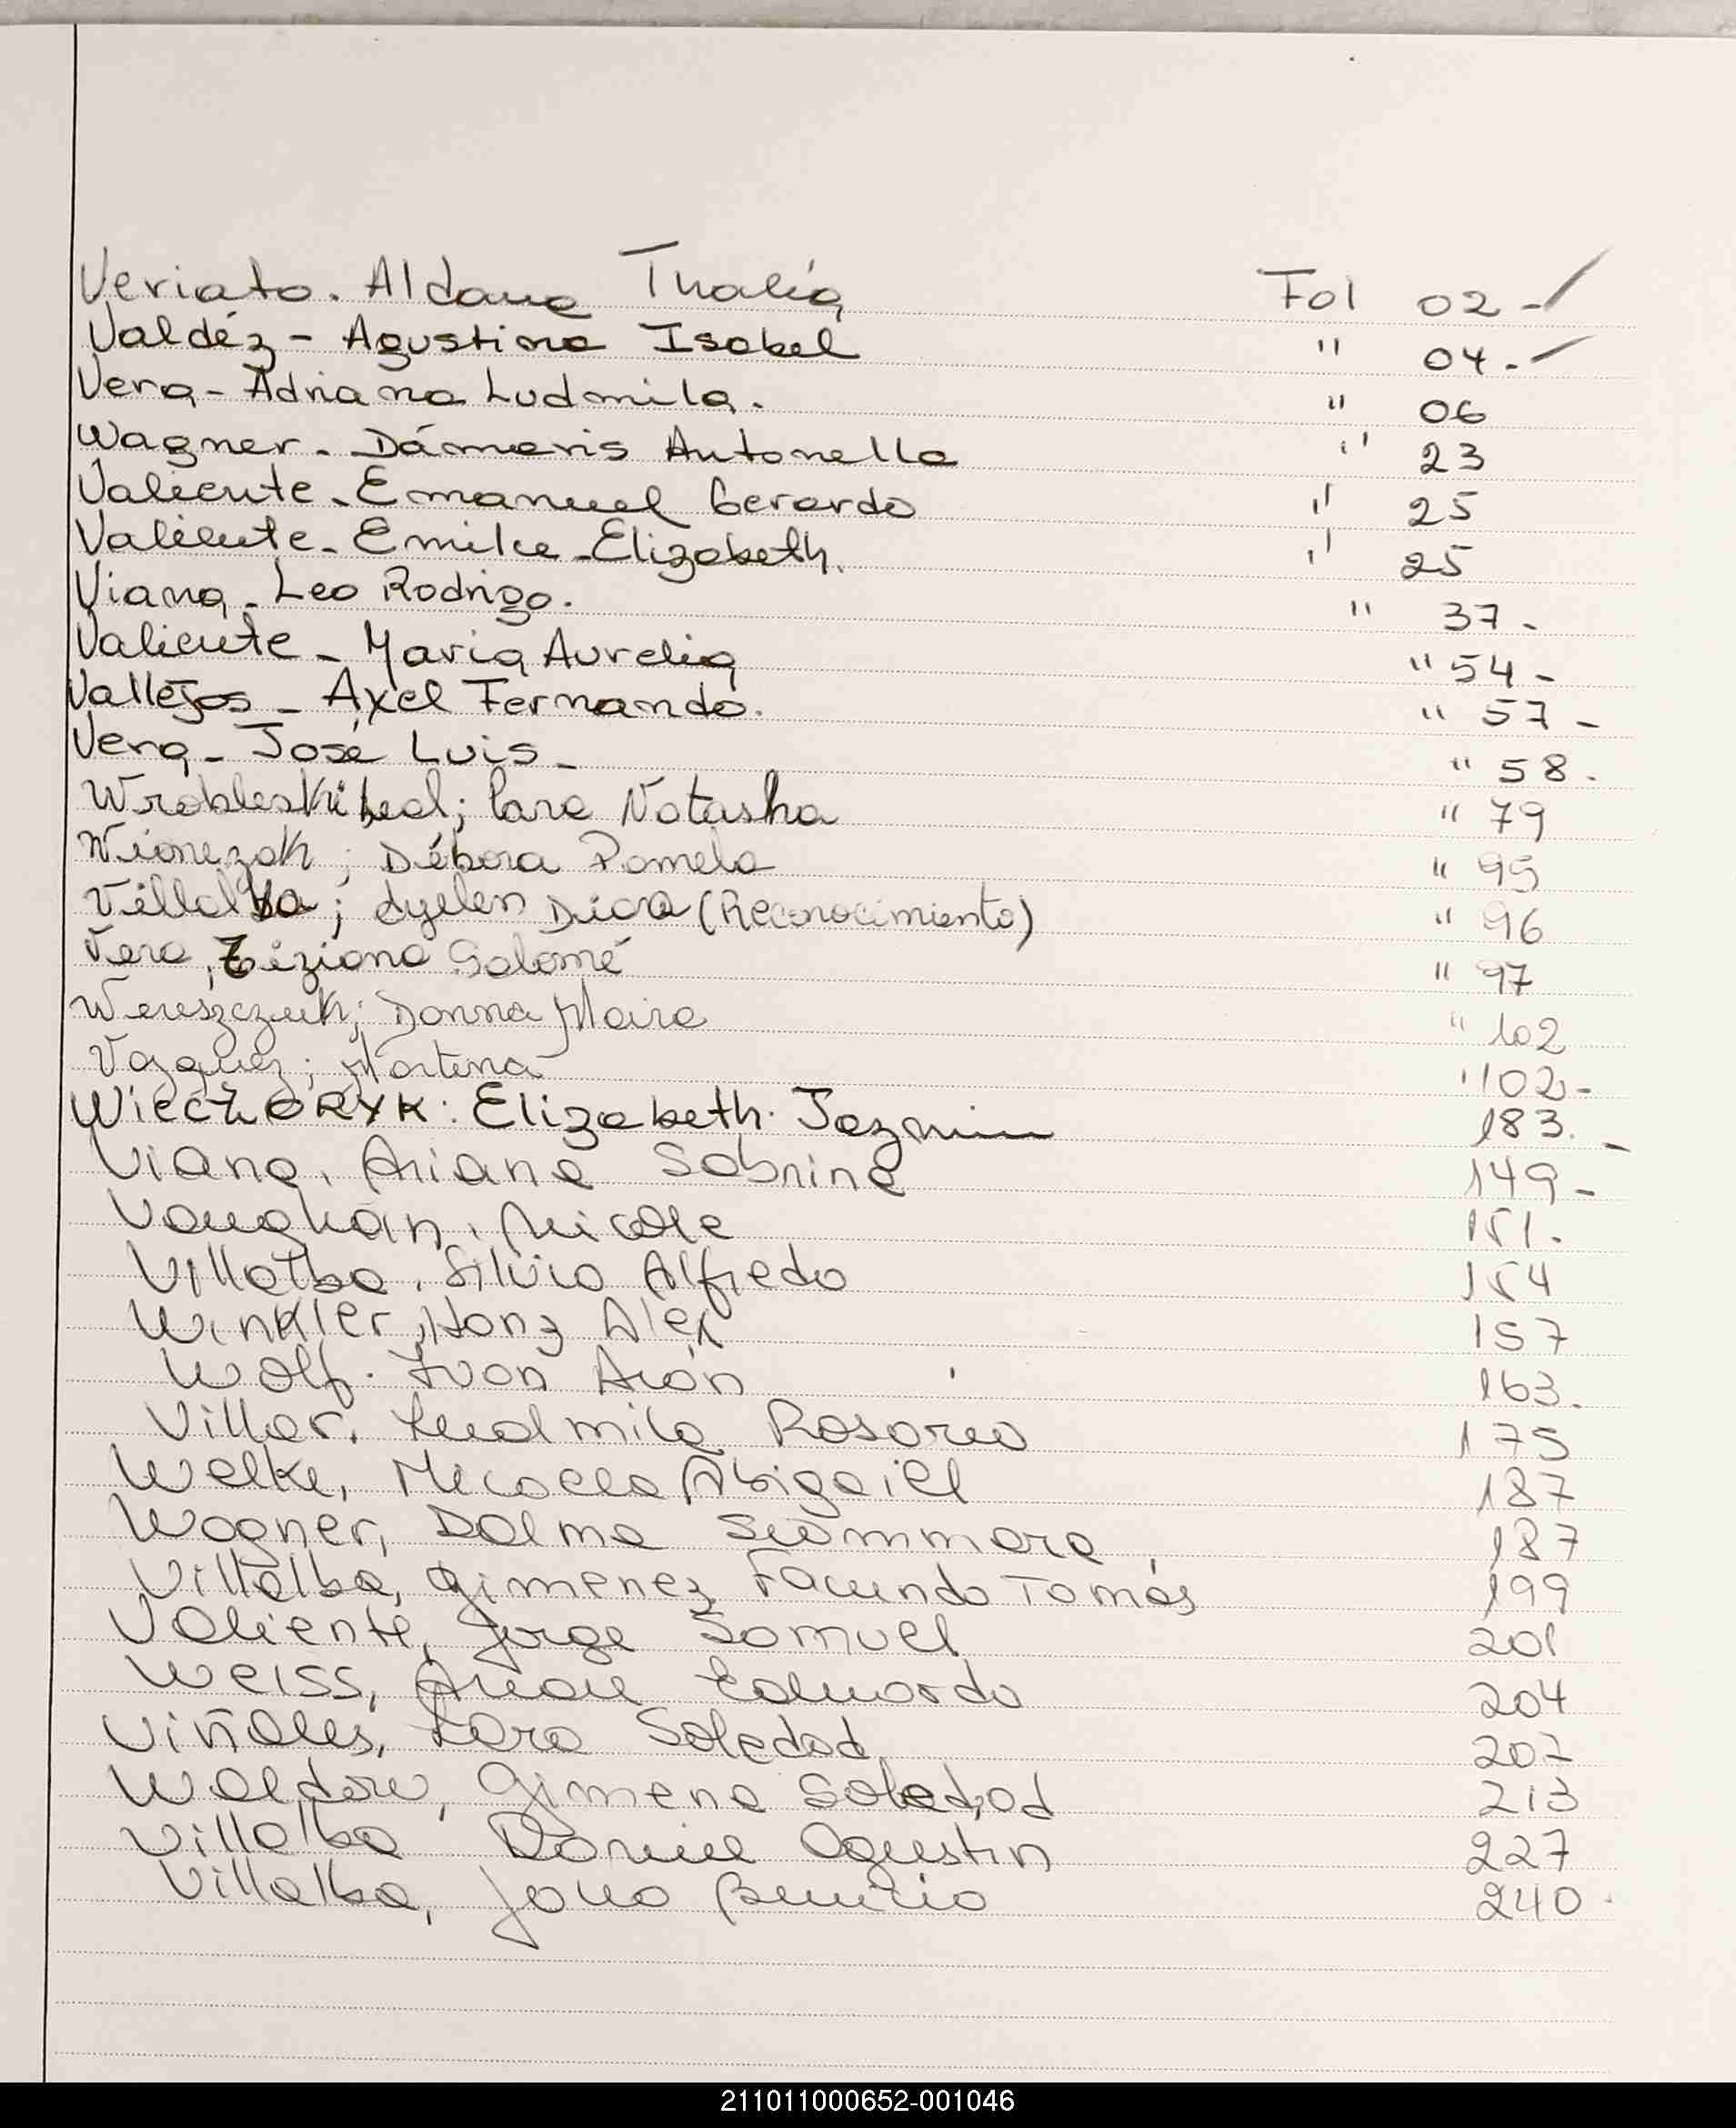 Veriato. Aldana Thalía Fol 02-
Valdéz - Agustina Isabel " 04.-
Vera - Adriana Ludmila. " 06
Wagner. Dámaris Antonella " 23
Valiente. Emanuel Gerardo " 25
Valiente. Emilce Elizabeth. " 25
Viana. Leo Rodrigo. " 37-
Valiente - Maria Aurelia " 54-
Vallejos - Axel Fernando. " 57-
Vera - José Luis - " 58.
Wrobleski Leal; Lara Natasha " 79
Wionczak; Débora Pamela " 95
Villalba; Ayelen Diana (Reconocimiento) " 96
Vera, Tiziana Salomé " 97
Wereszczuk; Donna Maira " 102
Vazquez; Martina " 102-
WIECZORYK: Elizabeth Jazmin 183.-
Viana, Ariana Sabrina 149-
Vaughan, Nicole 151.
Villalba, Silvio Alfredo 154
Winkler, Hanz Alex 157
Wolf. Ivan Arón 163.
Villar, Ludmila Rosario 175
Welke, Micaela Abigaiel 187
Wagner, Dalma Siommara, 187
Villalba, Gimenez Facundo Tomás 199
Valiente, Jorge Samuel 201
Weiss, Eduardo 204
Viñales, Lara Soledad, 207
Waldow, Gimena Soledad 213
Villalba Agustin 227
Villalba, 240